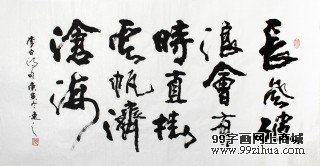 長風破
浪會有
時直掛
雲帆濟
滄海
李白詩句
99字画网上商城
www.99zihua.com